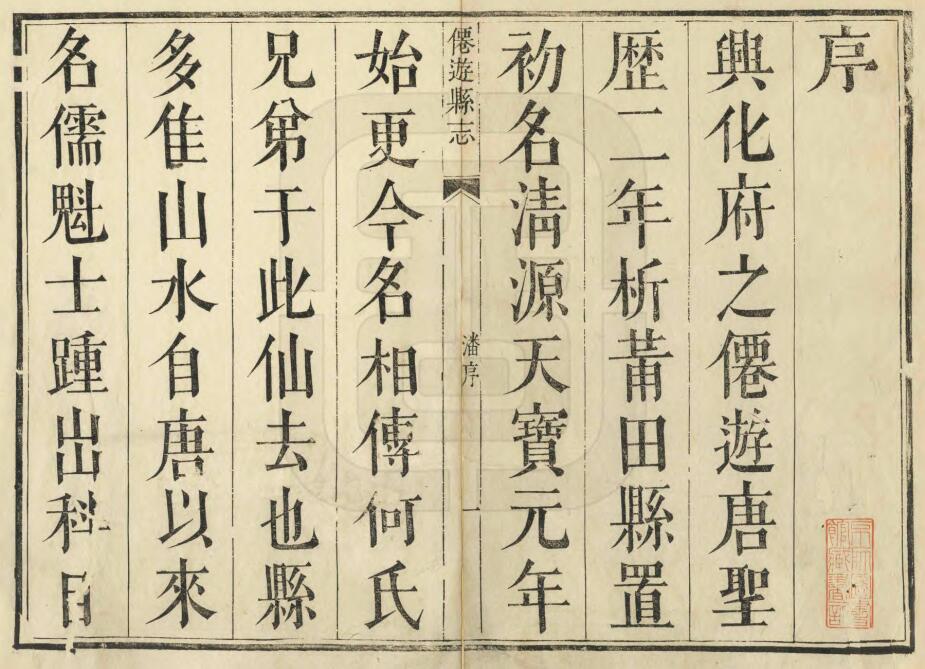 序
興化府之僊遊唐聖
歴二年析莆田縣置
初名清源天寶元年
僊遊縣志
潘序
一
始更今名相傳何氏
兄弟于此仙去也縣
多佳山水自唐以來
名儒魁士踵出科目